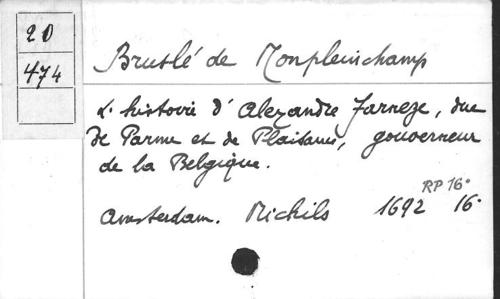 20
474
Bruslé de Monpleinchamp
L'histoire d'Alexandre Farneze, duc
de Parme et de Plaisance, gouverneur
de la Belgique.
RP 16°
Amsterdam. Michils 1692 16°